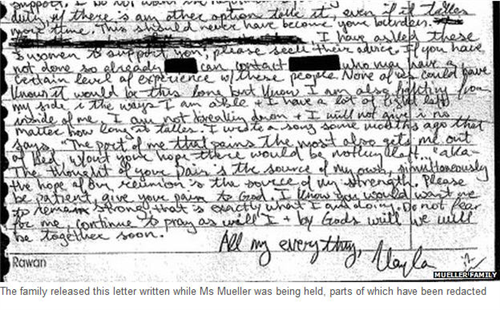 support, I do not want
duty, if there is any other option take it, even if it takes
more time. This should never have become your burden.
I have asked these
women to support you; please seek their advice. If you have
not done so already can contact who may have a
certain level of experience w/ these people. None of us could have
known it would be this long but know I am also fighting from
my side in the ways I am able + I have a lot of fight left
inside of me. I am not breaking down + I will not give in no
matter how long it takes. I wrote a song some months ago that
says, "The part of me that pains the most also gets me out
of bed, w/out your hope there would be nothing left..." aka-
The thought of your pain is the source of my own, simultaneously
the hope of our reunion is the source of my strength. Please
be patient, give your pain to God. I know you would want me
to remain strong. that is exactly what I am doing. Do not fear
for me, continue to pray as will I + by God's will we will
be together soon.
All my everything, Kayla
Rawan
MUELLER FAMILY
The family released this letter written while Ms Mueller was being held, parts of which have been redacted